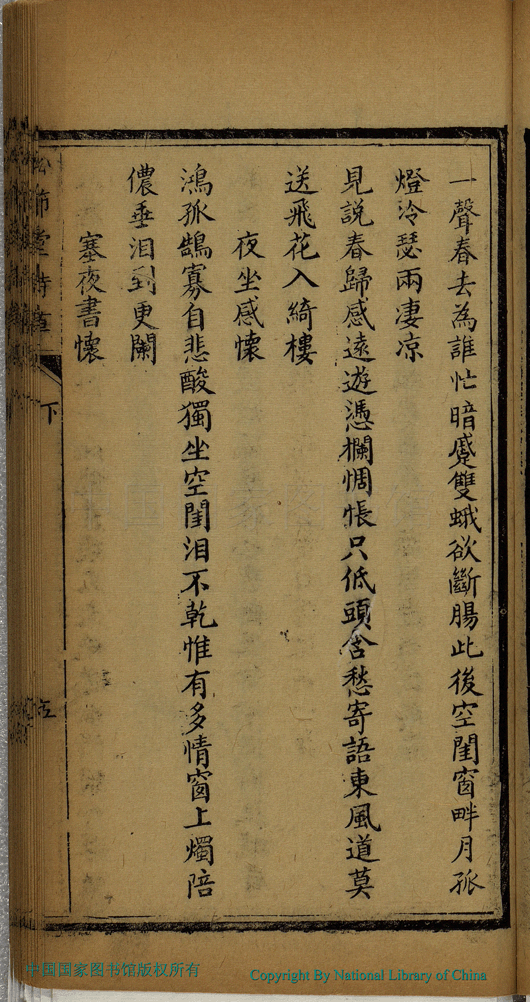 一聲春去為誰忙暗蹙雙蛾欲斷腸此後空閨窗畔月孤
燈泠瑟兩凄凉
見說春歸感遠遊憑欄惆悵只低頭含愁寄語東風道莫
送飛花入綺樓
夜坐感懷
鴻孤鵠寡自悲酸獨坐空閨泪不乾惟有多情窗上燭陪
儂垂泪到更闌
塞夜書懷
下
五
中国国家图书馆版权所有
Copyright By National Library of China